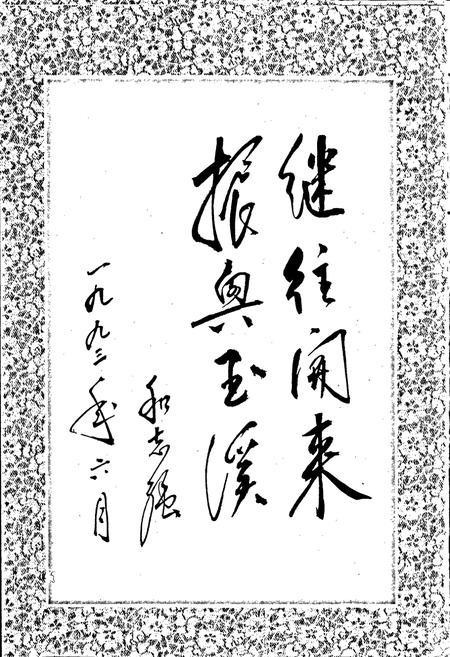 继往开来
振興玉溪
和志强
一九九三年六月